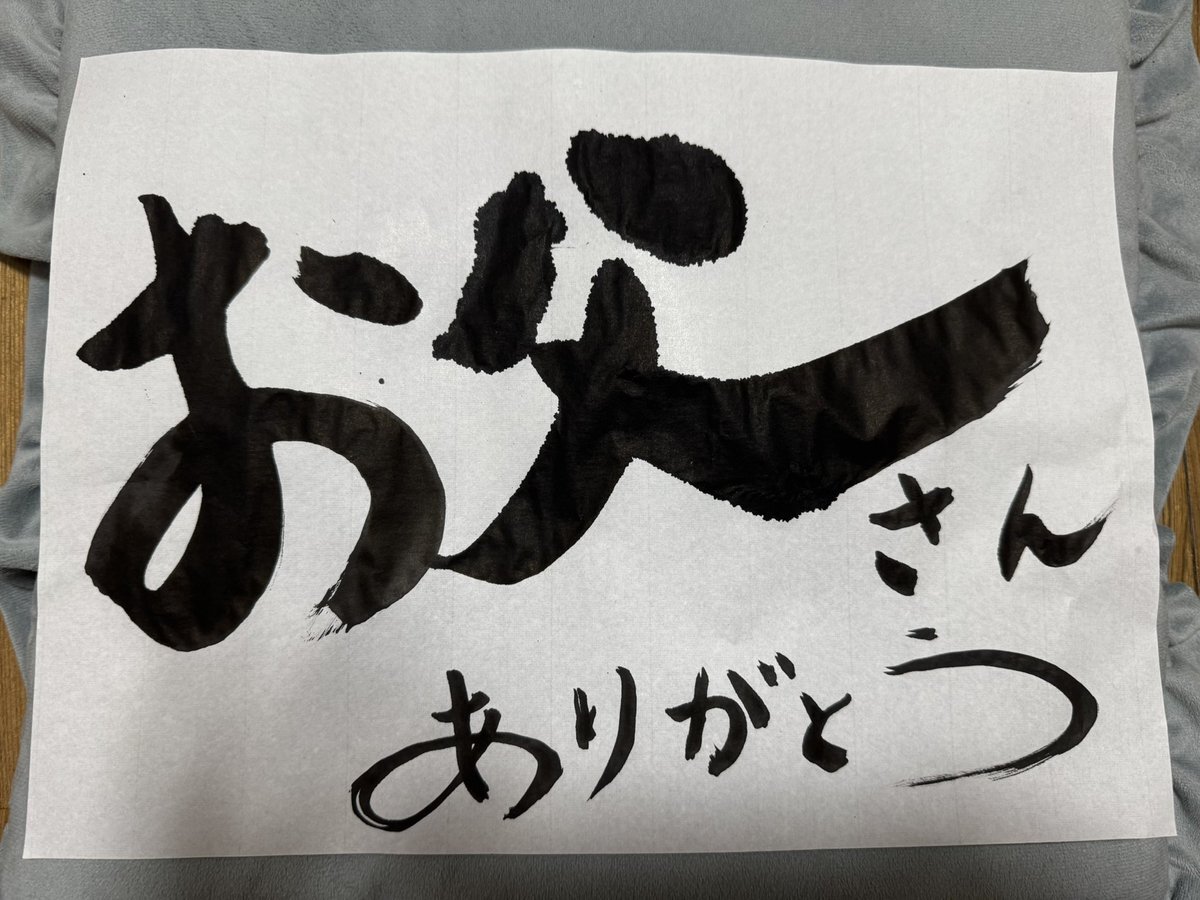 お父さん
ありがとう